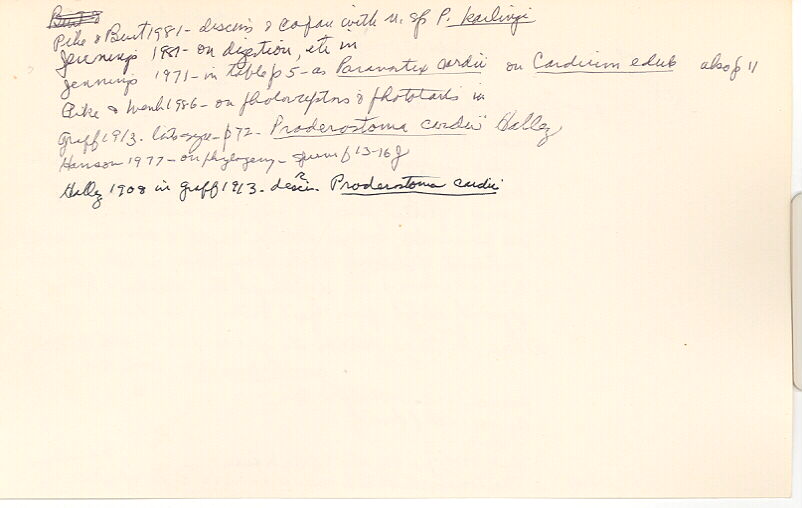 Pike & Burt 1981 - discuss & compare with n. sp P. karlingi
Jennings 1981 - on digestion, etc in
Jennings 1971 - in table p 5 - as Paravortex cardii on Cardium edule also p 11
Pike & 1986 - on photoreceptors & phototaxis in
Graff 1913. p 72 - Proderostoma cardii Hallez
Hanson 1977 - on phylogeny - sperm p 13-16 J
Hallez 1908 in Graff 1913. descr. Proderostoma cardii